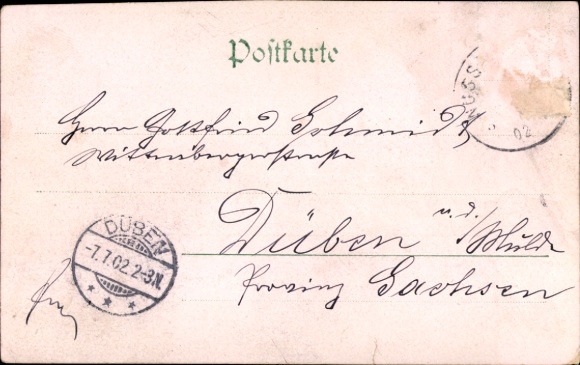 Postkarte
Herrn Gottfried Schmidt,
Wittenbergerstraße
Düben a. d./Mulde
Provinz Sachsen
DÜBEN
-7.7.02.2-3N.
02